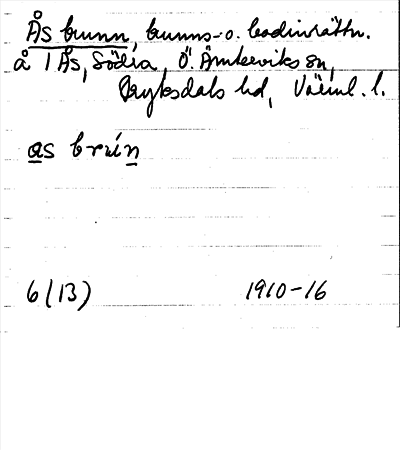 Ås brunn, brunns- o. badinrättn.
å 1 Ås, Södra, Ö. Ämterviks sn,
Fryksdals hd, Värml. l.
as brún
6 (13) 1910-16